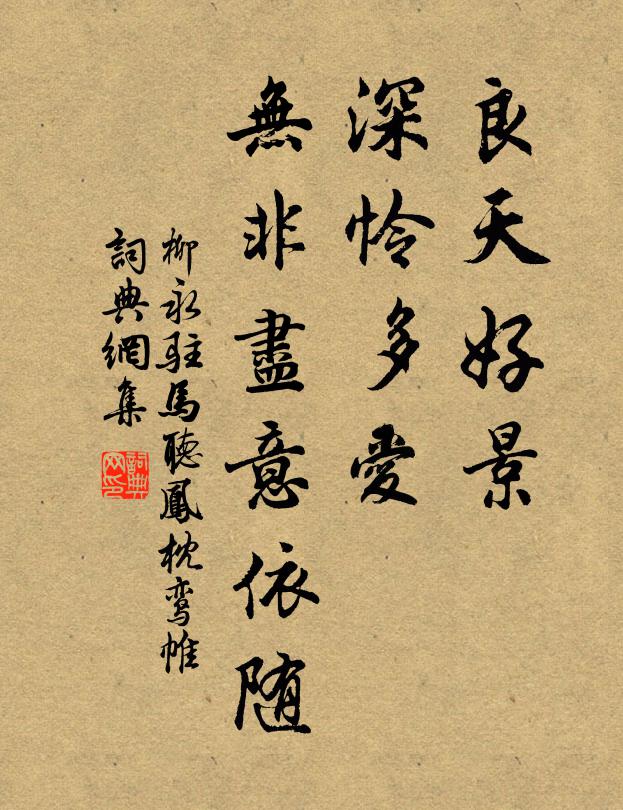 良天好景
深怜多愛
無非盡意依随
柳永駐馬聽鳳枕鸾帷
詞典網集
詞典网印